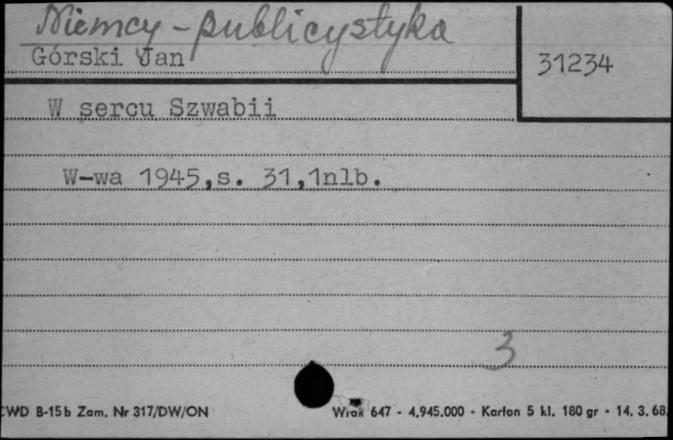 Niemcy - publicystyka
Górski Jan
31234
W sercu Szwabii
W-wa 1945,s. 31,1nlb.
3
CWD B-15b Zam. Nr 317/DW/ON Wrak 647 - 4.945.000 - Karton 5 kl. 180 gr - 14. 3. 68.